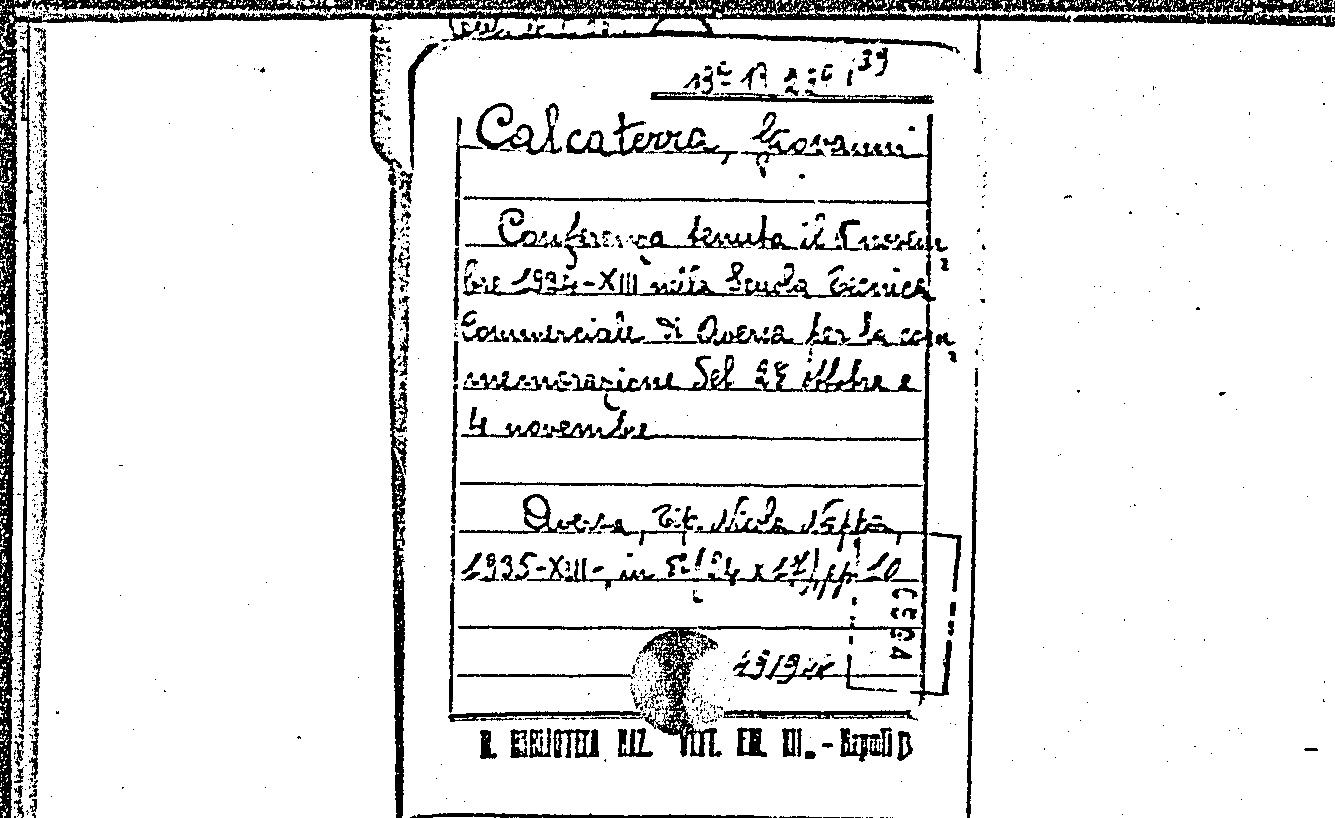 13ª B 23
Calcaterra, Giovanni
Conferenza tenuta il 5 novem=
bre 1934-XIII nella Scuola Tecnica
Commerciale di Aversa per la com=
memorazione del 28 ottobre e
4 novembre
Aversa, Tip. Nicola Nappa,
1935-XIII-, in 8º (24 x 17) pp 10
R. BIBLIOTECA NAZ. VITT. EM. III. - Napoli